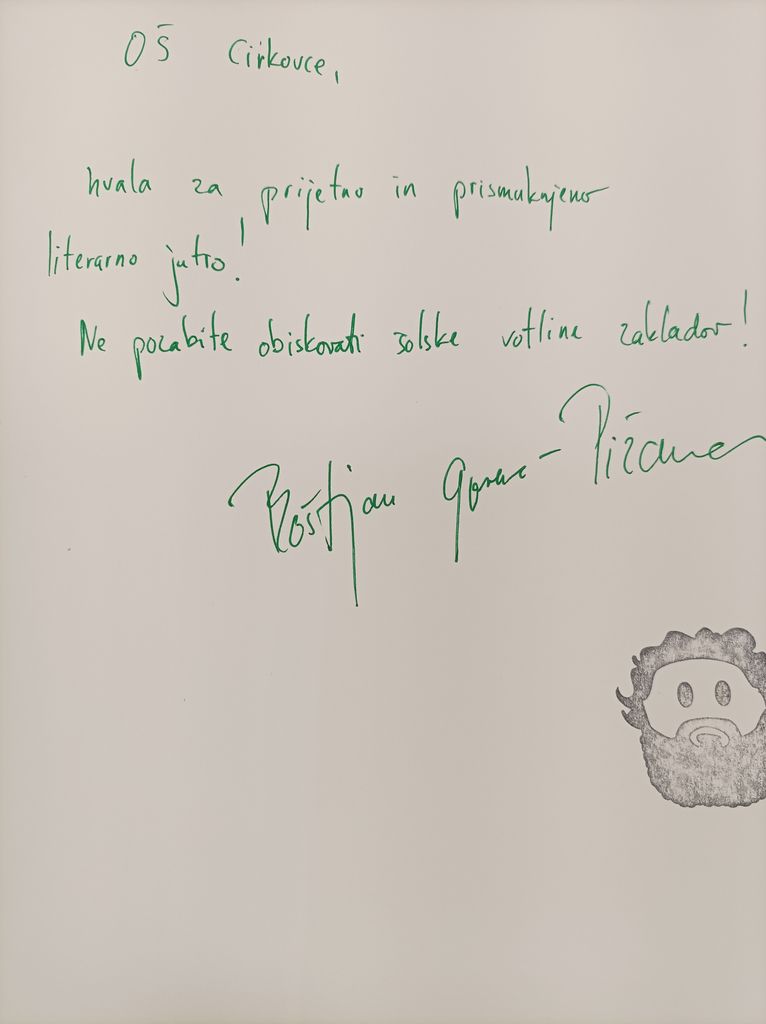 OŠ Cirkovce,
hvala za prijetno in prismuknjeno
literarno jutro!
Ne pozabite obiskovati šolske votline zakladov!
Boštjan Gorenc - Pižama